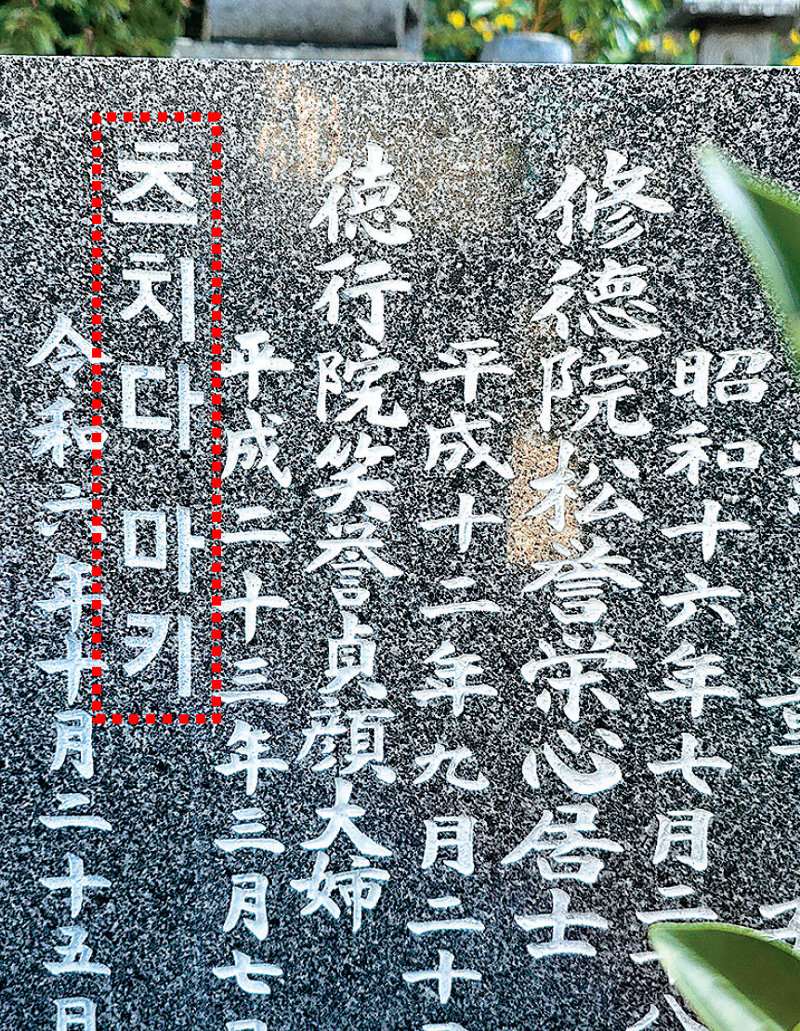 昭和十六年七月二
修徳院松誉栄心居士
平成十二年九月二十
徳行院笑誉貞顔大姉
平成二十三年三月七日
츠치다 마키
令和六年十月二十五日